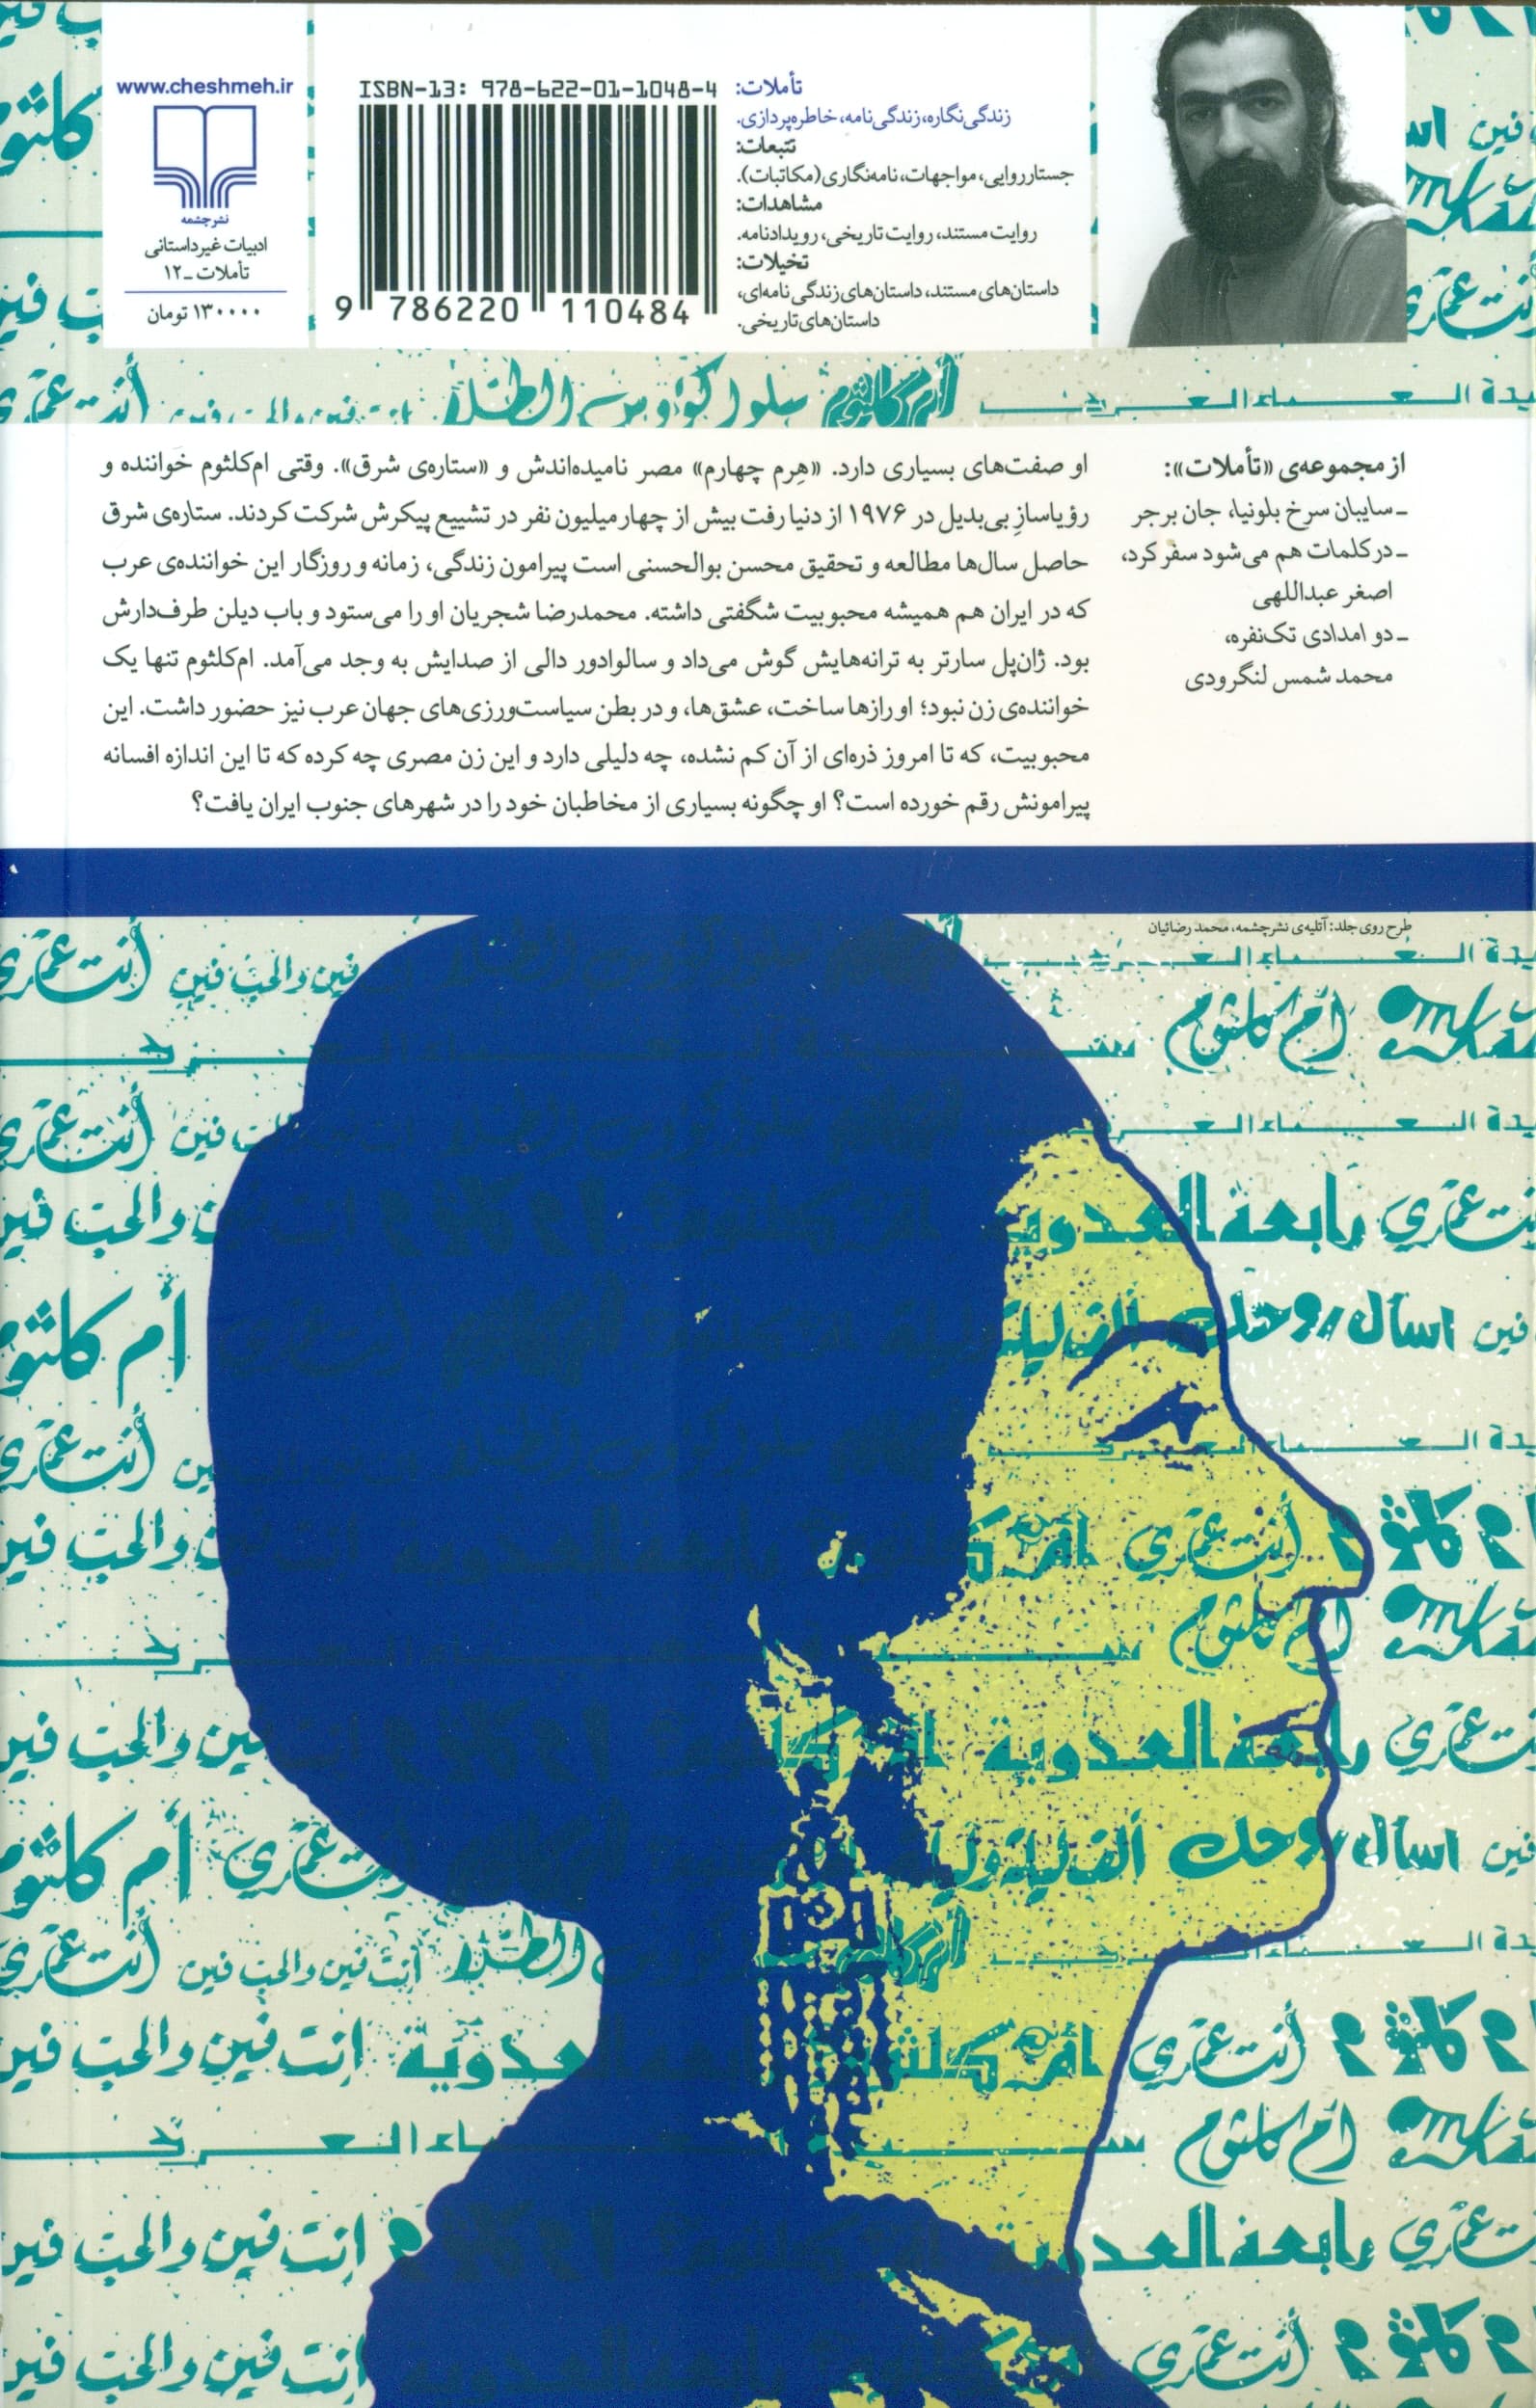 www.cheshmeh.ir
نشرچشمه
ادبیات غیرداستانی
تأملات ـ ۱۲
۱۳۰۰۰۰ تومان
ISBN-13: 978-622-01-1048-4
9 786220 110484
تأملات:
زندگی‌نگاره، زندگی‌نامه، خاطره‌پردازی.
تتبعات:
جستارروایی، مواجهات، نامه‌نگاری (مکاتبات).
مشاهدات:
روایت مستند، روایت تاریخی، رویدادنامه.
تخیلات:
داستان‌های مستند، داستان‌های زندگی‌نامه‌ای،
داستان‌های تاریخی.
از مجموعه‌ی «تأملات»:
ـ سایبان سرخ بلونیا، جان برجر
ـ در کلمات هم می‌شود سفر کرد،
اصغر عبداللهی
ـ دو امدادی تک‌نفره،
محمد شمس لنگرودی
او صفت‌های بسیاری دارد. «هِرم چهارم» مصر نامیده‌اندش و «ستاره‌ی شرق». وقتی ام‌کلثوم خواننده و
رؤیاسازِ بی‌بدیل در ۱۹۷۶ از دنیا رفت بیش از چهار میلیون نفر در تشییع پیکرش شرکت کردند. ستاره‌ی شرق
حاصل سال‌ها مطالعه و تحقیق محسن بوالحسنی است پیرامون زندگی، زمانه و روزگار این خواننده‌ی عرب
که در ایران هم همیشه محبوبیت شگفتی داشته. محمدرضا شجریان او را می‌ستود و باب دیلن طرف‌دارش
بود. ژان‌پل سارتر به ترانه‌هایش گوش می‌داد و سالوادور دالی از صدایش به وجد می‌آمد. ام‌کلثوم تنها یک
خواننده‌ی زن نبود؛ او رازها ساخت، عشق‌ها، و در بطن سیاست‌ورزی‌های جهان عرب نیز حضور داشت. این
محبوبیت، که تا امروز ذره‌ای از آن کم نشده، چه دلیلی دارد و این زن مصری چه کرده که تا این اندازه افسانه
پیرامونش رقم خورده است؟ او چگونه بسیاری از مخاطبان خود را در شهرهای جنوب ایران یافت؟
طرح روی جلد: آتلیه‌ی نشرچشمه، محمد رضائیان
أم كلثوم
أنت عمري رابعة العدوية
فين اسأل روحك ألف ليلة وليلة
أنت عمري
انت فين والحب فين